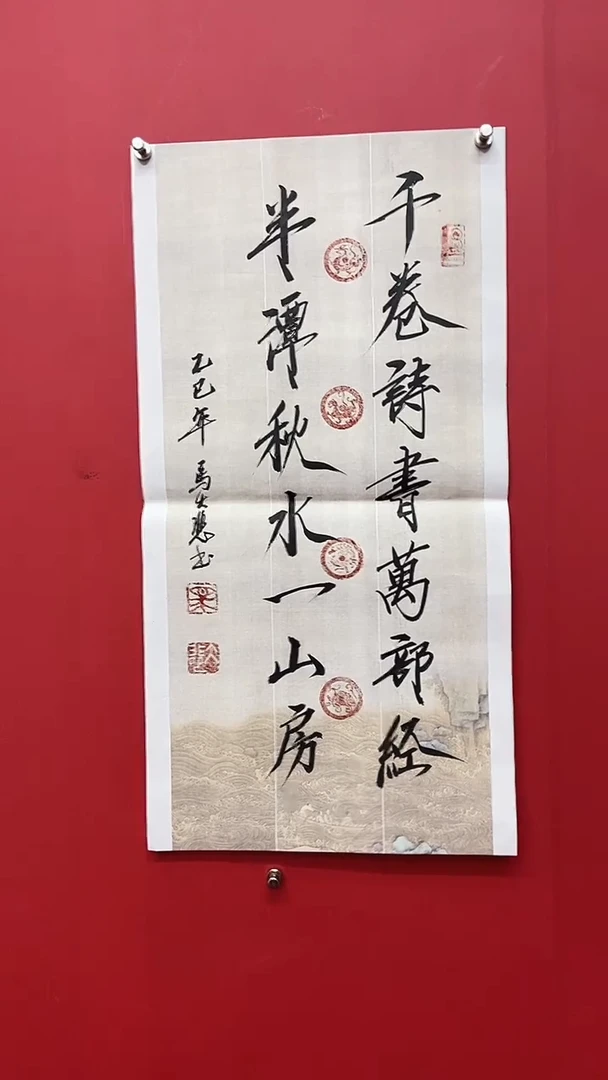 千卷詩書萬部経
半潭秋水一山房
乙巳年 馬生聰书